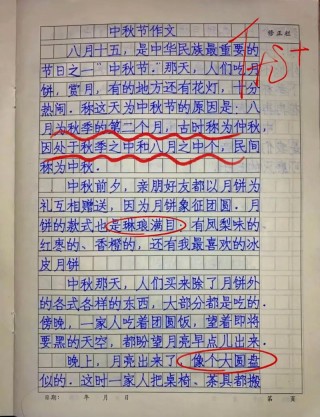 中秋节作文
修正栏
八月十五，是中华民族最重要的
节日之一"中秋节."那天，人们吃月
饼，赏月，有的地方还有花灯，十分
热闹．称这天为中秋节的原因是：八
月为秋季的第二个月，古时称为仲秋，
因处于秋季之中和八月之中个，民间
称为中秋．
中秋前夕，亲朋好友都以月饼为
礼互相赠送，因为月饼象征团圆．月
饼的款式也是琳琅满目．有凤梨味的
红枣的、香橙的，还有我最喜欢的冰
皮月饼
中秋那天，人们买来除了月饼外
的各式各样的东西，大部分都是吃的．
傍晚，一家人吃着团圆饭，望着即将
要黑的天空，都盼望月亮早点儿出来．
晚上，月亮出来了，像个大圆盘
似的．这时一家人把桌椅、茶具都搬
日期： 年 月 日 第 页